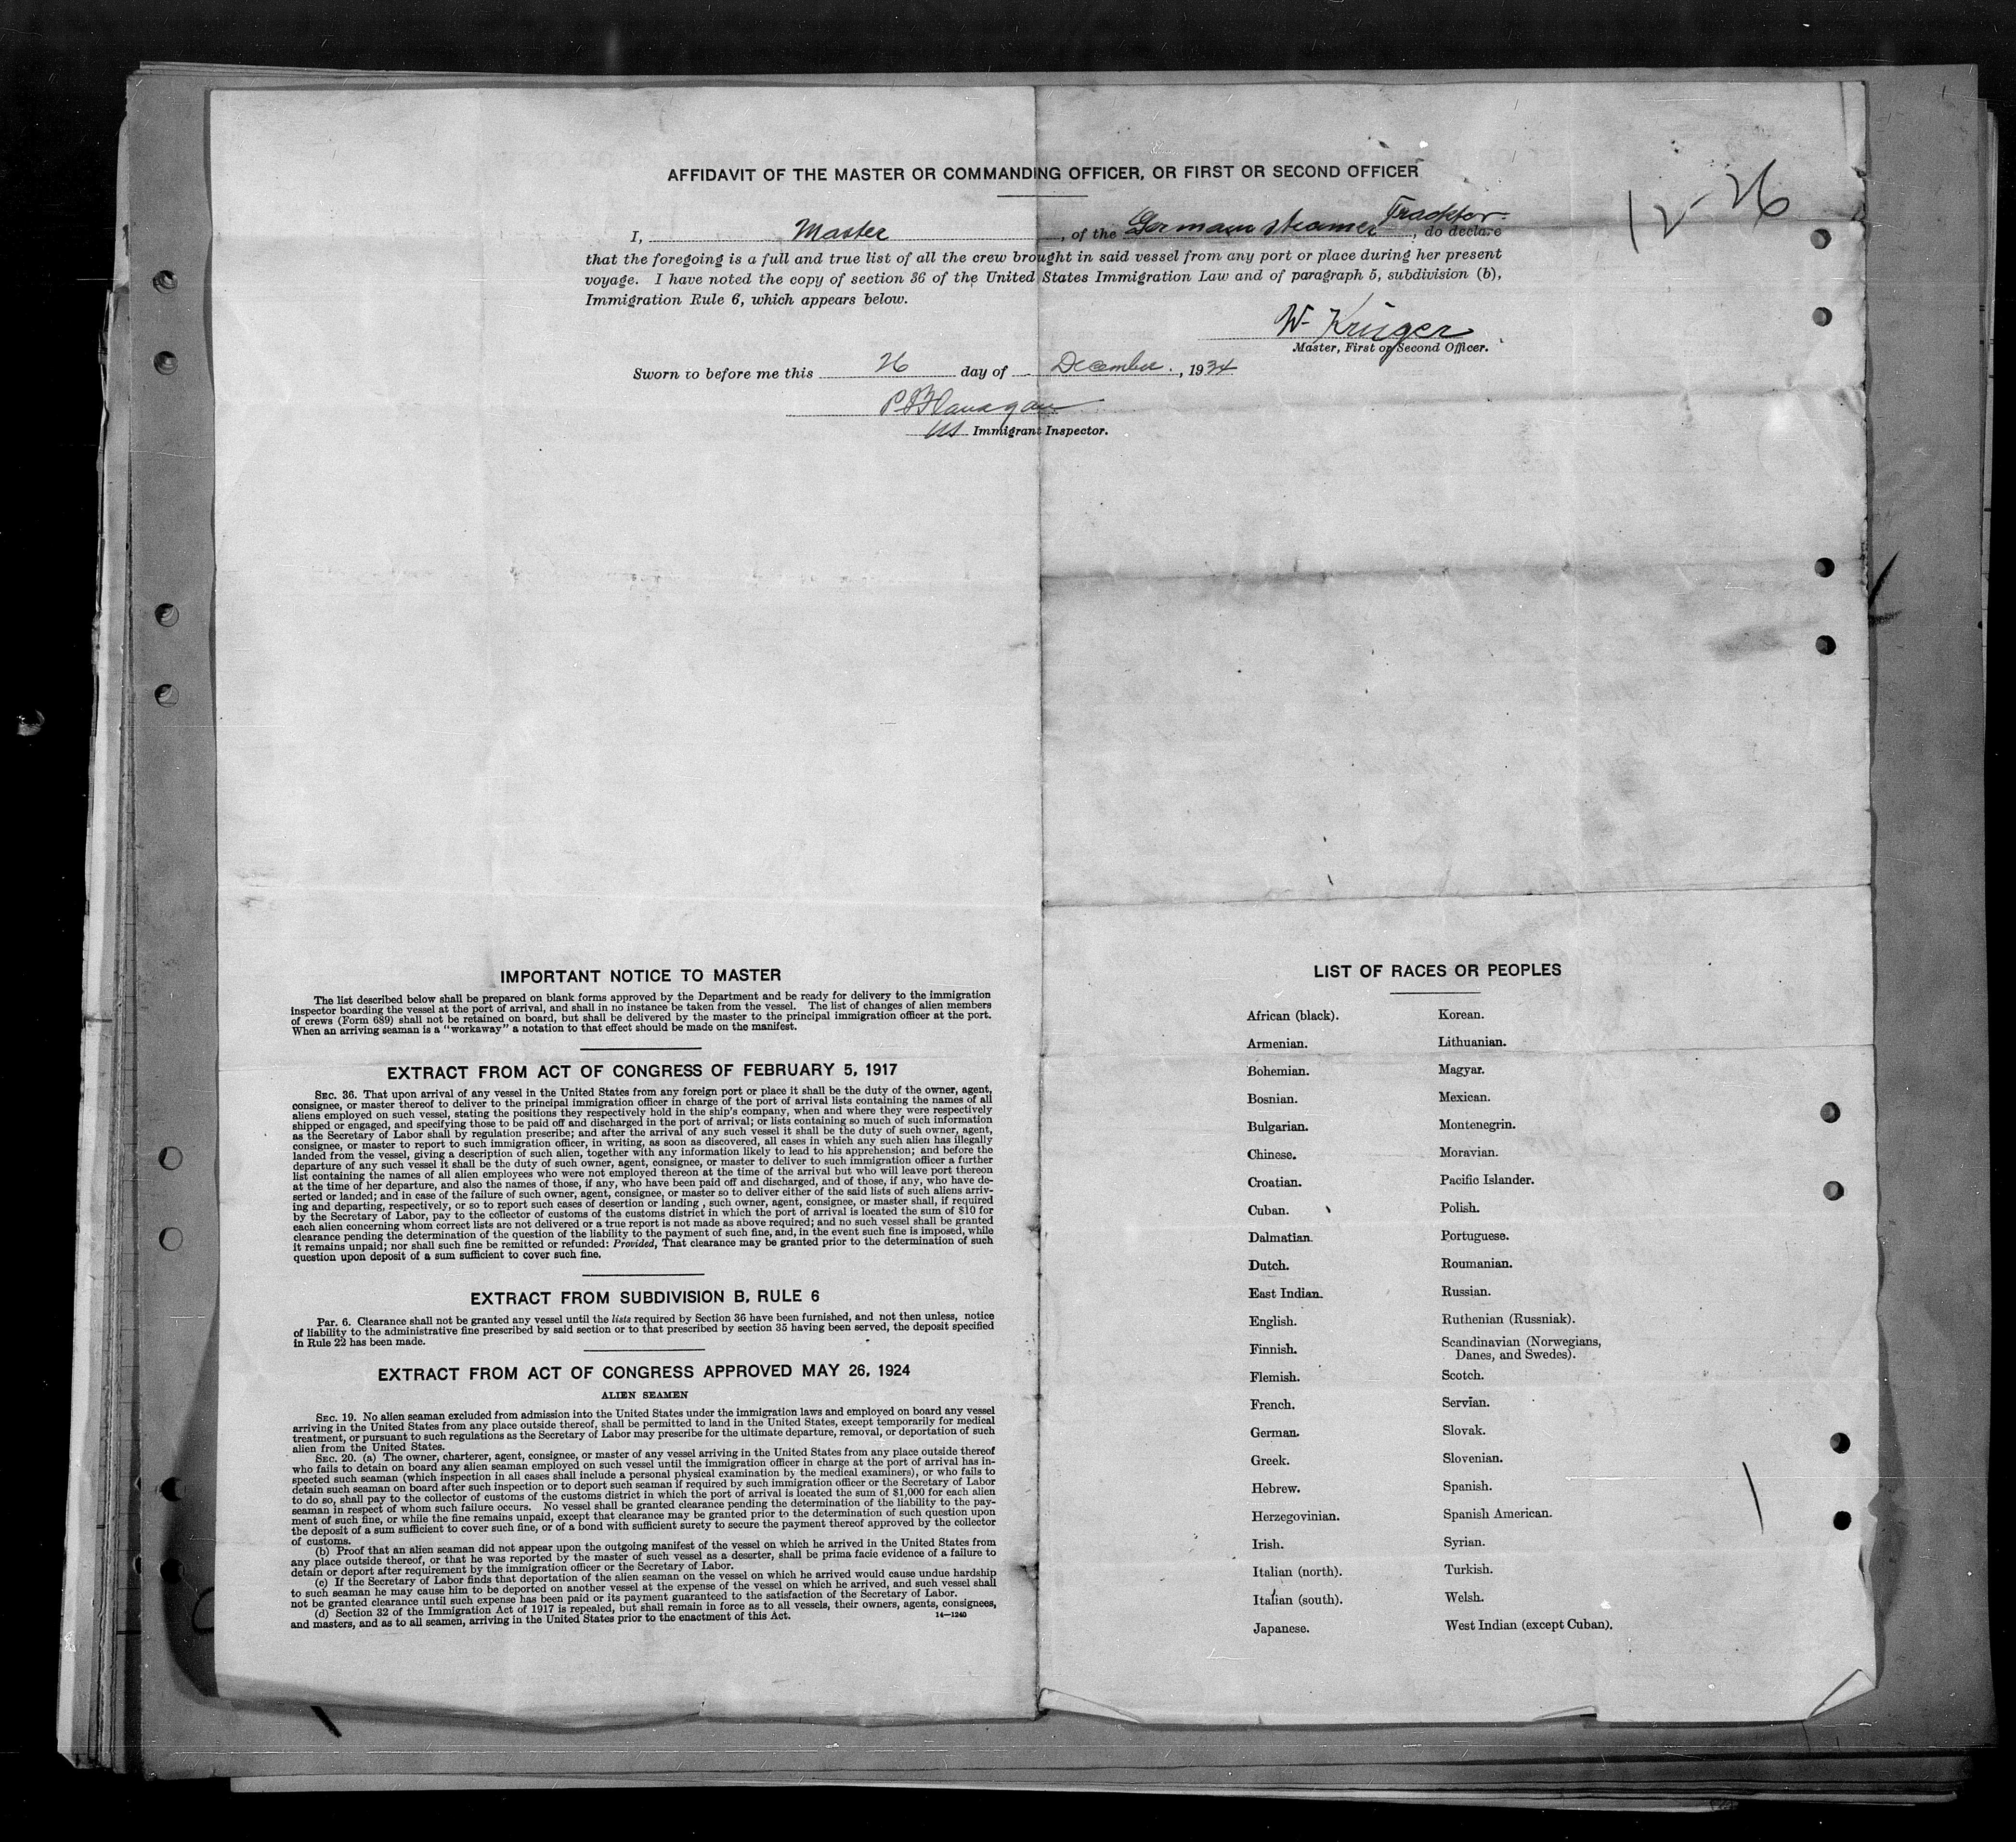 AFFIDAVIT OF THE MASTER OR COMMANDING OFFICER, OR FIRST OR SECOND OFFICER
12-26
I, Master, of the German steamer Tracktor, do declare
that the foregoing is a full and true list of all the crew brought in said vessel from any port or place during her present
voyage. I have noted the copy of section 36 of the United States Immigration Law and of paragraph 5, subdivision (b),
Immigration Rule 6, which appears below.
W. Krüger
Master, First or Second Officer.
Sworn to before me this 26 day of December, 1934
P Flanagan
US Immigrant Inspector.
IMPORTANT NOTICE TO MASTER
The list described below shall be prepared on blank forms approved by the Department and be ready for delivery to the immigration
inspector boarding the vessel at the port of arrival, and shall in no instance be taken from the vessel. The list of changes of alien members
of crews (Form 689) shall not be retained on board, but shall be delivered by the master to the principal immigration officer at the port.
When an arriving seaman is a "workaway" a notation to that effect should be made on the manifest.
EXTRACT FROM ACT OF CONGRESS OF FEBRUARY 5, 1917
SEC. 36. That upon arrival of any vessel in the United States from any foreign port or place it shall be the duty of the owner, agent,
consignee, or master thereof to deliver to the principal immigration officer in charge of the port of arrival lists containing the names of all
aliens employed on such vessel, stating the positions they respectively hold in the ship's company, when and where they were respectively
shipped or engaged, and specifying those to be paid off and discharged in the port of arrival; or lists containing so much of such information
as the Secretary of Labor shall by regulation prescribe; and after the arrival of any such vessel it shall be the duty of such owner, agent,
consignee, or master to report to such immigration officer, in writing, as soon as discovered, all cases in which any such alien has illegally
landed from the vessel, giving a description of such alien, together with any information likely to lead to his apprehension; and before the
departure of any such vessel it shall be the duty of such owner, agent, consignee, or master to deliver to such immigration officer a further
list containing the names of all alien employees who were not employed thereon at the time of the arrival but who will leave port thereon
at the time of her departure, and also the names of those, if any, who have been paid off and discharged, and of those, if any, who have de-
serted or landed; and in case of the failure of such owner, agent, consignee, or master so to deliver either of the said lists of such aliens arriv-
ing and departing, respectively, or so to report such cases of desertion or landing, such owner, agent, consignee, or master shall, if required
by the Secretary of Labor, pay to the collector of customs of the customs district in which the port of arrival is located the sum of $10 for
each alien concerning whom correct lists are not delivered or a true report is not made as above required; and no such vessel shall be granted
clearance pending the determination of the question of the liability to the payment of such fine, and, in the event such fine is imposed, while
it remains unpaid; nor shall such fine be remitted or refunded: Provided, That clearance may be granted prior to the determination of such
question upon deposit of a sum sufficient to cover such fine.
EXTRACT FROM SUBDIVISION B, RULE 6
Par. 6. Clearance shall not be granted any vessel until the lists required by Section 36 have been furnished, and not then unless, notice
of liability to the administrative fine prescribed by said section or to that prescribed by section 35 having been served, the deposit specified
in Rule 22 has been made.
EXTRACT FROM ACT OF CONGRESS APPROVED MAY 26, 1924
ALIEN SEAMEN
SEC. 19. No alien seaman excluded from admission into the United States under the immigration laws and employed on board any vessel
arriving in the United States from any place outside thereof, shall be permitted to land in the United States, except temporarily for medical
treatment, or pursuant to such regulations as the Secretary of Labor may prescribe for the ultimate departure, removal, or deportation of such
alien from the United States.
SEC. 20. (a) The owner, charterer, agent, consignee, or master of any vessel arriving in the United States from any place outside thereof
who fails to detain on board any alien seaman employed on such vessel until the immigration officer in charge at the port of arrival has in-
spected such seaman (which inspection in all cases shall include a personal physical examination by the medical examiners), or who fails to
detain such seaman on board after such inspection or to deport such seaman if required by such immigration officer or the Secretary of Labor
to do so, shall pay to the collector of customs of the customs district in which the port of arrival is located the sum of $1,000 for each alien
seaman in respect of whom such failure occurs. No vessel shall be granted clearance pending the determination of the liability to the pay-
ment of such fine, or while the fine remains unpaid, except that clearance may be granted prior to the determination of such question upon
the deposit of a sum sufficient to cover such fine, or of a bond with sufficient surety to secure the payment thereof approved by the collector
of customs.
(b) Proof that an alien seaman did not appear upon the outgoing manifest of the vessel on which he arrived in the United States from
any place outside thereof, or that he was reported by the master of such vessel as a deserter, shall be prima facie evidence of a failure to
detain or deport after requirement by the immigration officer or the Secretary of Labor.
(c) If the Secretary of Labor finds that deportation of the alien seaman on the vessel on which he arrived would cause undue hardship
to such seaman he may cause him to be deported on another vessel at the expense of the vessel on which he arrived, and such vessel shall
not be granted clearance until such expense has been paid or its payment guaranteed to the satisfaction of the Secretary of Labor.
(d) Section 32 of the Immigration Act of 1917 is repealed, but shall remain in force as to all vessels, their owners, agents, consignees,
and masters, and as to all seamen, arriving in the United States prior to the enactment of this Act.
14—1240
LIST OF RACES OR PEOPLES
African (black).
Armenian.
Bohemian.
Bosnian.
Bulgarian.
Chinese.
Croatian.
Cuban.
Dalmatian.
Dutch.
East Indian.
English.
Finnish.
Flemish.
French.
German.
Greek.
Hebrew.
Herzegovinian.
Irish.
Italian (north).
Italian (south).
Japanese.
Korean.
Lithuanian.
Magyar.
Mexican.
Montenegrin.
Moravian.
Pacific Islander.
Polish.
Portuguese.
Roumanian.
Russian.
Ruthenian (Russniak).
Scandinavian (Norwegians,
Danes, and Swedes).
Scotch.
Servian.
Slovak.
Slovenian.
Spanish.
Spanish American.
Syrian.
Turkish.
Welsh.
West Indian (except Cuban).